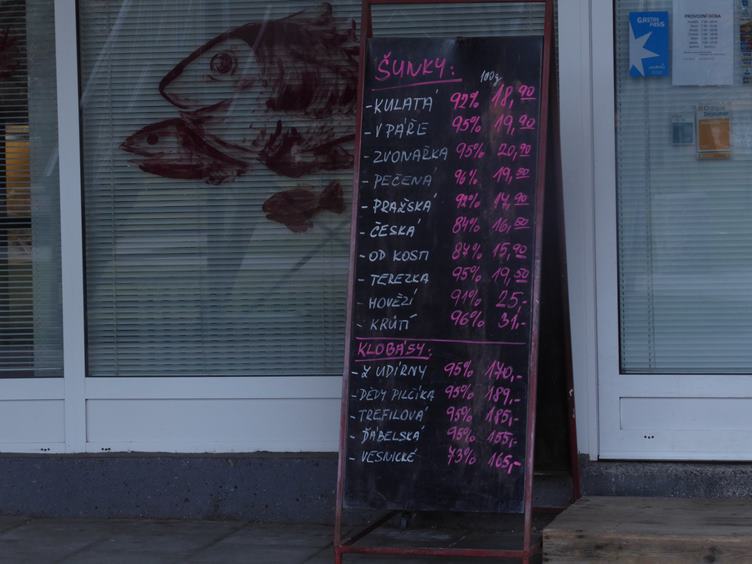 ŠUNKY: 100g
- KULATÁ 92% 18,90
- V PÁŘE 95% 19,90
- ZVONAŘKA 95% 20,90
- PEČENÁ 96% 19,80
- PRAŽSKÁ 92% 17,90
- ČESKÁ 84% 16,80
- OD KOSTI 87% 15,90
- TEREZKA 95% 19,50
- HOVĚZÍ 91% 25,-
- KRŮTÍ 96% 31,-
KLOBÁSY:
- Z UDÍRNY 95% 170,-
- DĚDY PILČÍKA 95% 189,-
- TREFILOVÁ 95% 185,-
- ĎÁBELSKÁ 95% 155,-
- VESNICKÉ 73% 165,-
GASTRO
PASS
PROVOZNÍ DOBA